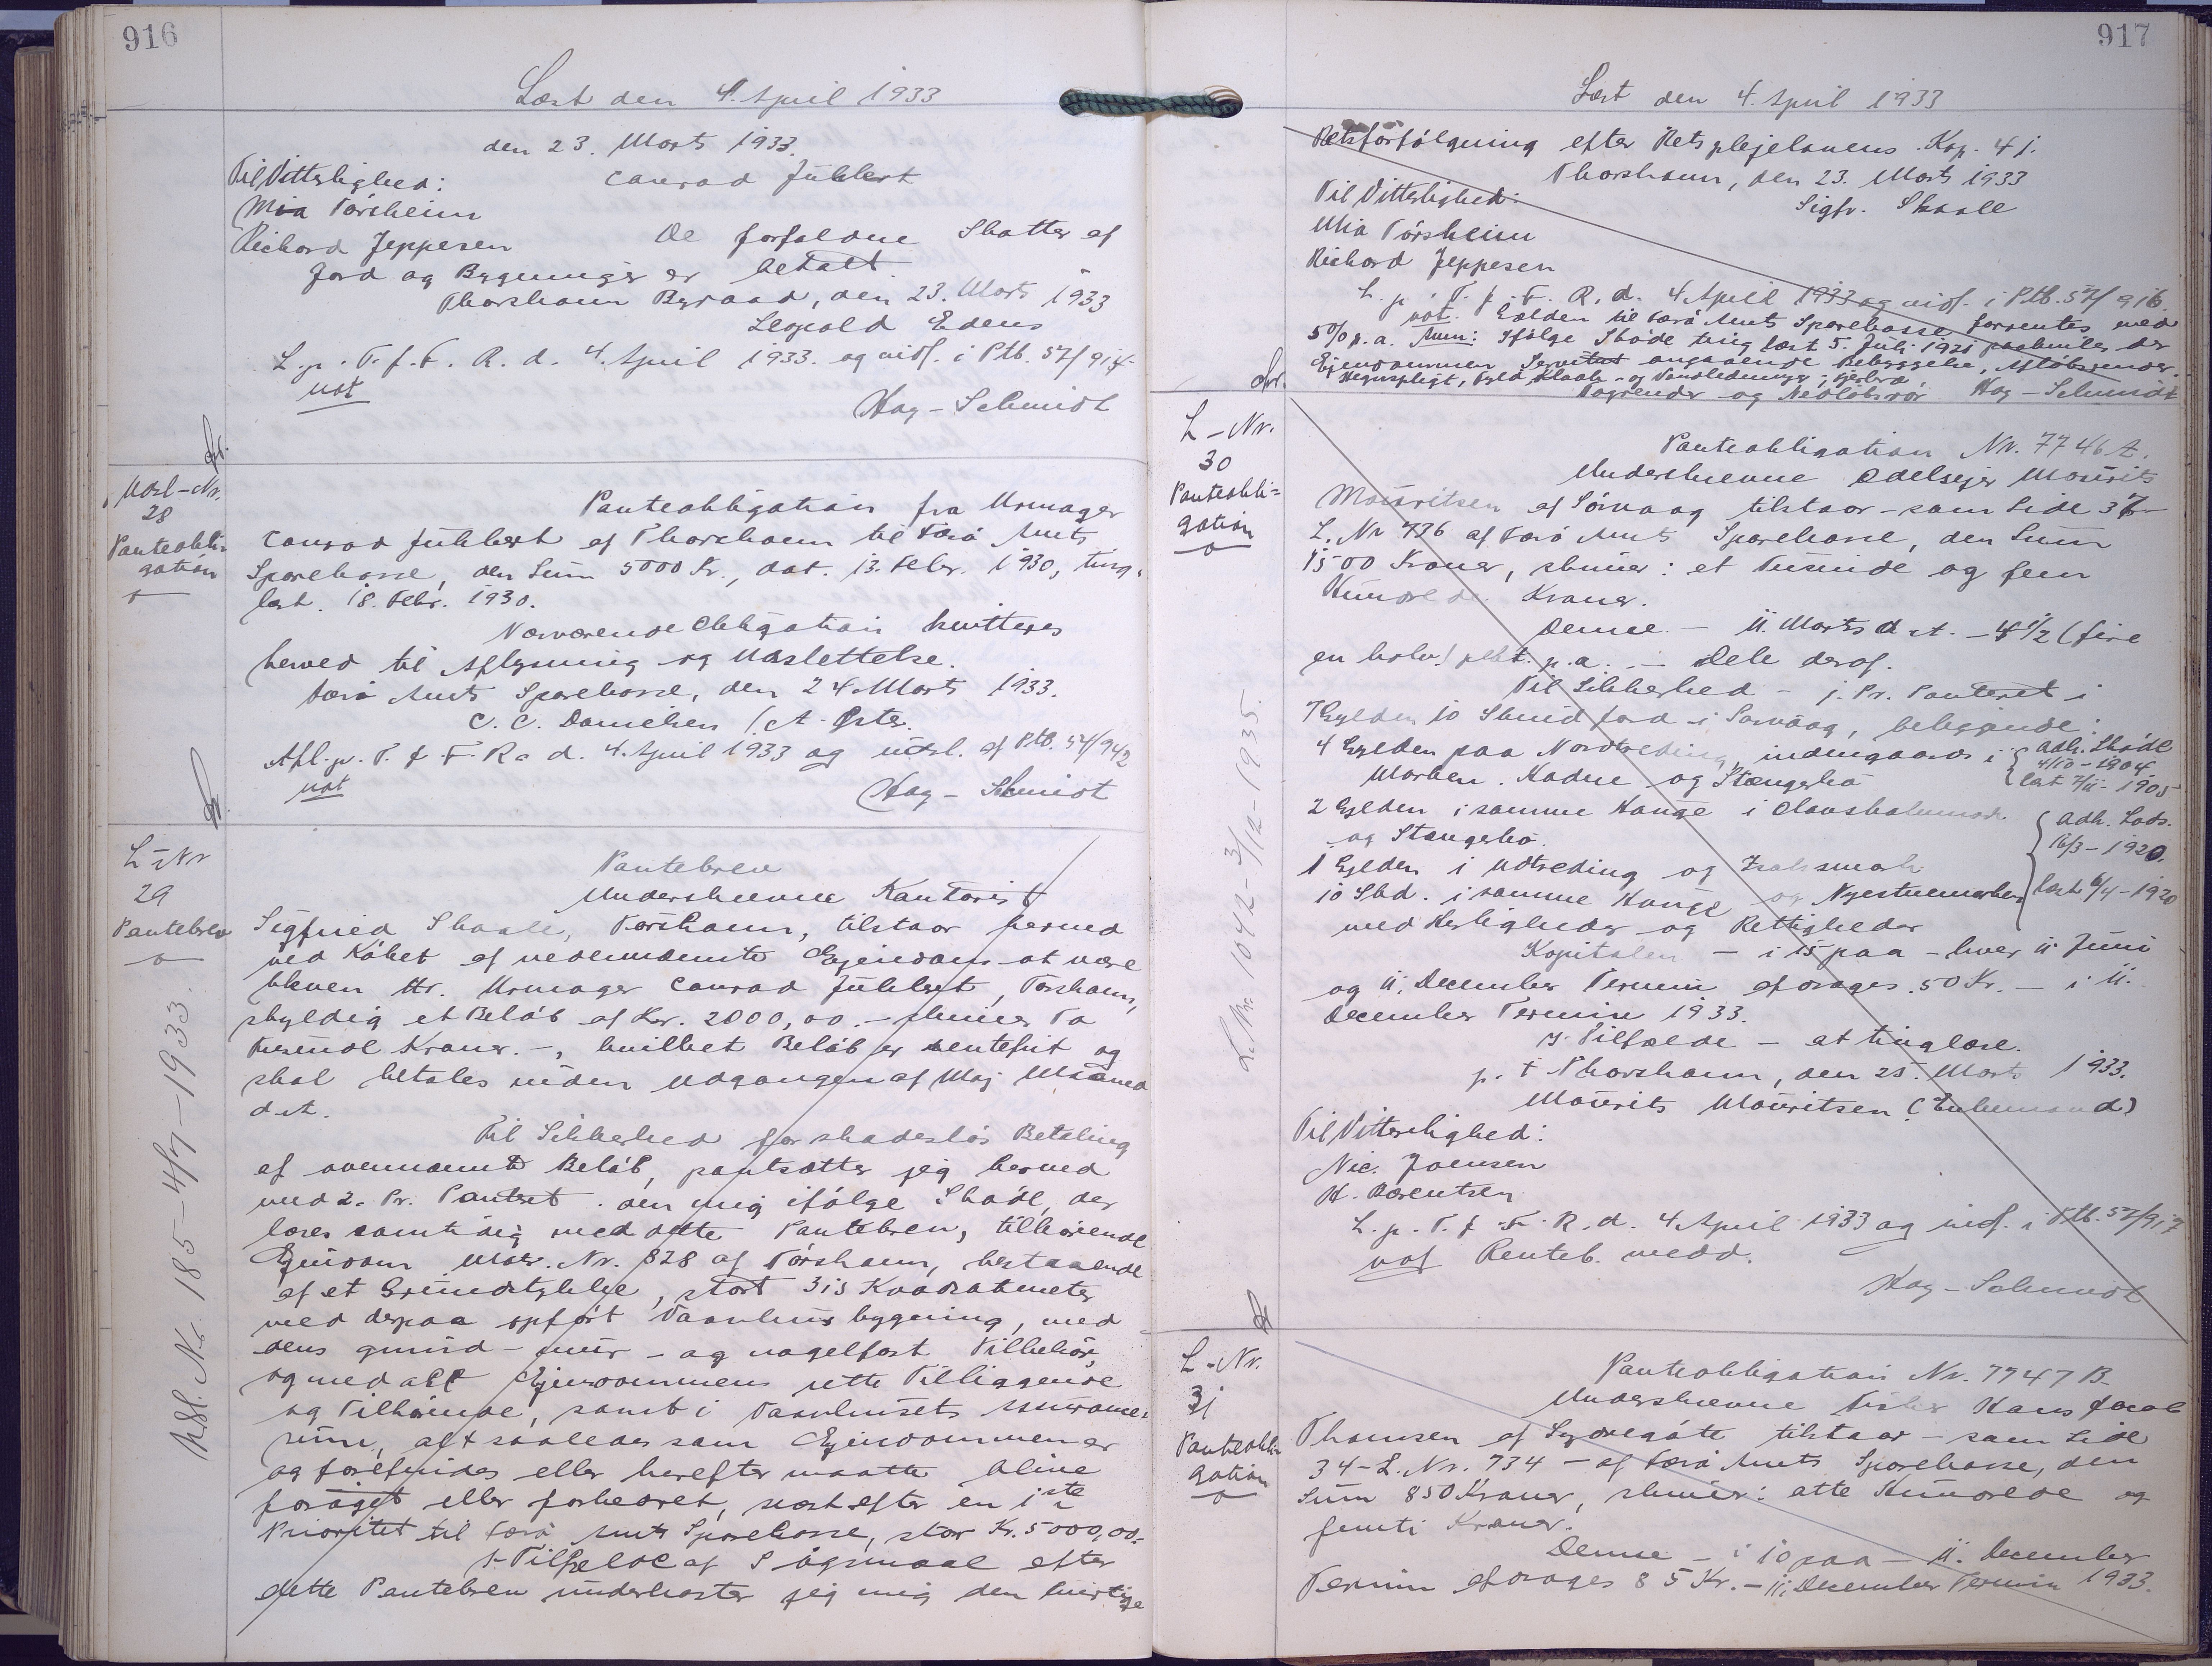 916
Læst den 4. April 1933
den 23. Marts 1933.
Til Vitterlighed:
Conrad Juhlert
Mia Tórsheim
Richard Jeppesen
De forfaldne Skatter af
Jord og Bygninger er betalt.
Thorshavn Byraad, den 23. Marts 1933
Leopold Edens
L. p. T. f. F. R. d. 4. April 1933. og indf. i Ptb. 57/914
not
Hag-Schmidt
Marl-Nr.
28
Panteobli-
gation
Panteobligation fra Urmager
Conrad Juhlert af Thorshavn til Færø Amts
Sparekasse, den Sum 5000 Kr., dat. 13. Febr. 1930, ting-
læst. 18. Febr. 1930.
Nærværende Obligation kvitteres
herved til Aflysning og Udslettelse.
Færø Amts Sparekasse, den 24. Marts 1933.
C. C. Danielsen / A. Øster.
Afl. p. T. f. F. R. d. 4. April 1933 og udsl. af Ptb. 54/942
not
Hag-Schmidt
L-Nr
29
Pantebrev
Afl. Nr. 185 - 4/7 - 1933.
Pantebrev
Underskrevne Kontorist
Sigfried Skaale, Tórshavn, tilstaar herved
ved Købet af nedennævnte Ejendom at være
bleven Hr. Urmager Conrad Juhlert, Tórshavn,
skyldig et Beløb af Kr. 2000,00.- skriver To
Tusende Kroner.-, hvilket Beløb er rentefrit og
skal betales inden Udgangen af Maj Maaned
d. A.
Til Sikkerhed for skadesløs Betaling
af ovennævnte Beløb, pantsætter jeg herved
med 2. Pr. Panteret den mig ifølge Skøde, der
læses samtidig med dette Pantebrev, tilhørende
Ejendom Matr. Nr. 828 af Tórshavn, bestaaende
af et Grundstykke, stort 315 Kvadratmeter
med derpaa opført Vaaningshusbygning, med
dens grund- mur- og nagelfast Tilbehør,
og med alt Ejendommens rette Tilliggende
og Tilhørende, samt i Vaaningshusets
alt saaledes som Ejendommen er
og forefindes eller herefter maatte blive
forøget eller forbedret, næst efter en 1ste
Prioritet til Færø Amts Sparekasse, stor Kr. 5000,00.-
I Tilfælde af Søgsmaal efter
dette Pantebrev underkaster jeg mig den hurtige
917
Læst den 4. April 1933
Retsforfølgning efter Retsplejelovens Kap. 41.
Thorshavn, den 23. Marts 1933
Til Vitterlighed:
Sigfr. Skaale
Mia Tórsheim
Richard Jeppesen
L. p. T. f. F. R. d. 4 April 1933 og indf. i Ptb. 57/916.
not. Gælden til Færø Amts Sparekasse forrentes med
5% p.a. Anm: Ifølge Skøde ting læst 5. Juli 1921 paahviler der
Ejendommen Servitut angaaende Bebyggelse, Afløbsrender,
Hegnspligt, Fyld, Kloak- og Vandledninger,
Tagrender og Nedløbsrør. Hag-Schmidt
L-Nr.
30
Panteobli-
gation
L. Nr. 1042 - 3/12 - 1935.
Panteobligation Nr. 7746 A.
Underskrevne Odelsejer Mourits
Mouritsen af Sórvaag tilstaar - som Side 37
L. Nr 736 af Færø Amts Sparekasse, den Sum
1500 Kroner, skriver: et Tusinde og fem
Hundrede Kroner.
Denne - 11. Marts d. A. - 4 1/2 (fire
en halv) pCt. p.a. - Dele deraf.
Til Sikkerhed - 1. Pr. Panteret i
7 Gylden 10 Skind Jord i Sorvaag, beliggende:
4 Gylden paa indengaards i
Marken og Stængebø
Adk. Skøde
4/10-1904
læst 7/11-1905
2 Gylden i samme Hauge i
og Stængebø.
Adk. Lods.
16/3-1920,
læst 6/4-1920
1 Gylden i Udtreding og
10 Skd. i samme Hauge og Nyestuemarken
med Herligheder og Rettigheder
Kapitalen - i 15 paa - hver 11 Juni
og 11. December Termin afdrages 50 Kr. - i 11.
December Termin 1933.
I Tilfælde - at tinglæse.
p. t. Thorshavn, den 25. Marts 1933.
Mourits Mouritsen (Enkemand)
Til Vitterlighed:
Nic. Joensen
H. Berentsen
L. p. T. f. F. R. d. 4 April 1933 og indf. i Ptb. 57/917
not Renteb. medd.
Hag-Schmidt
L-Nr.
31
Panteobli-
gation
Panteobligation Nr. 7747 B.
Underskrevne Fisker Hans Jacob
Thomsen af Syðregøte tilstaar - som Side
34 - L. Nr. 734 - af Færø Amts Sparekasse, den
Sum 850 Kroner, skriver: otte Hundrede og
femti Kroner.
Denne - i 10 paa - 11. December
Termin afdrages 85 Kr. - 11. December Termin 1933.